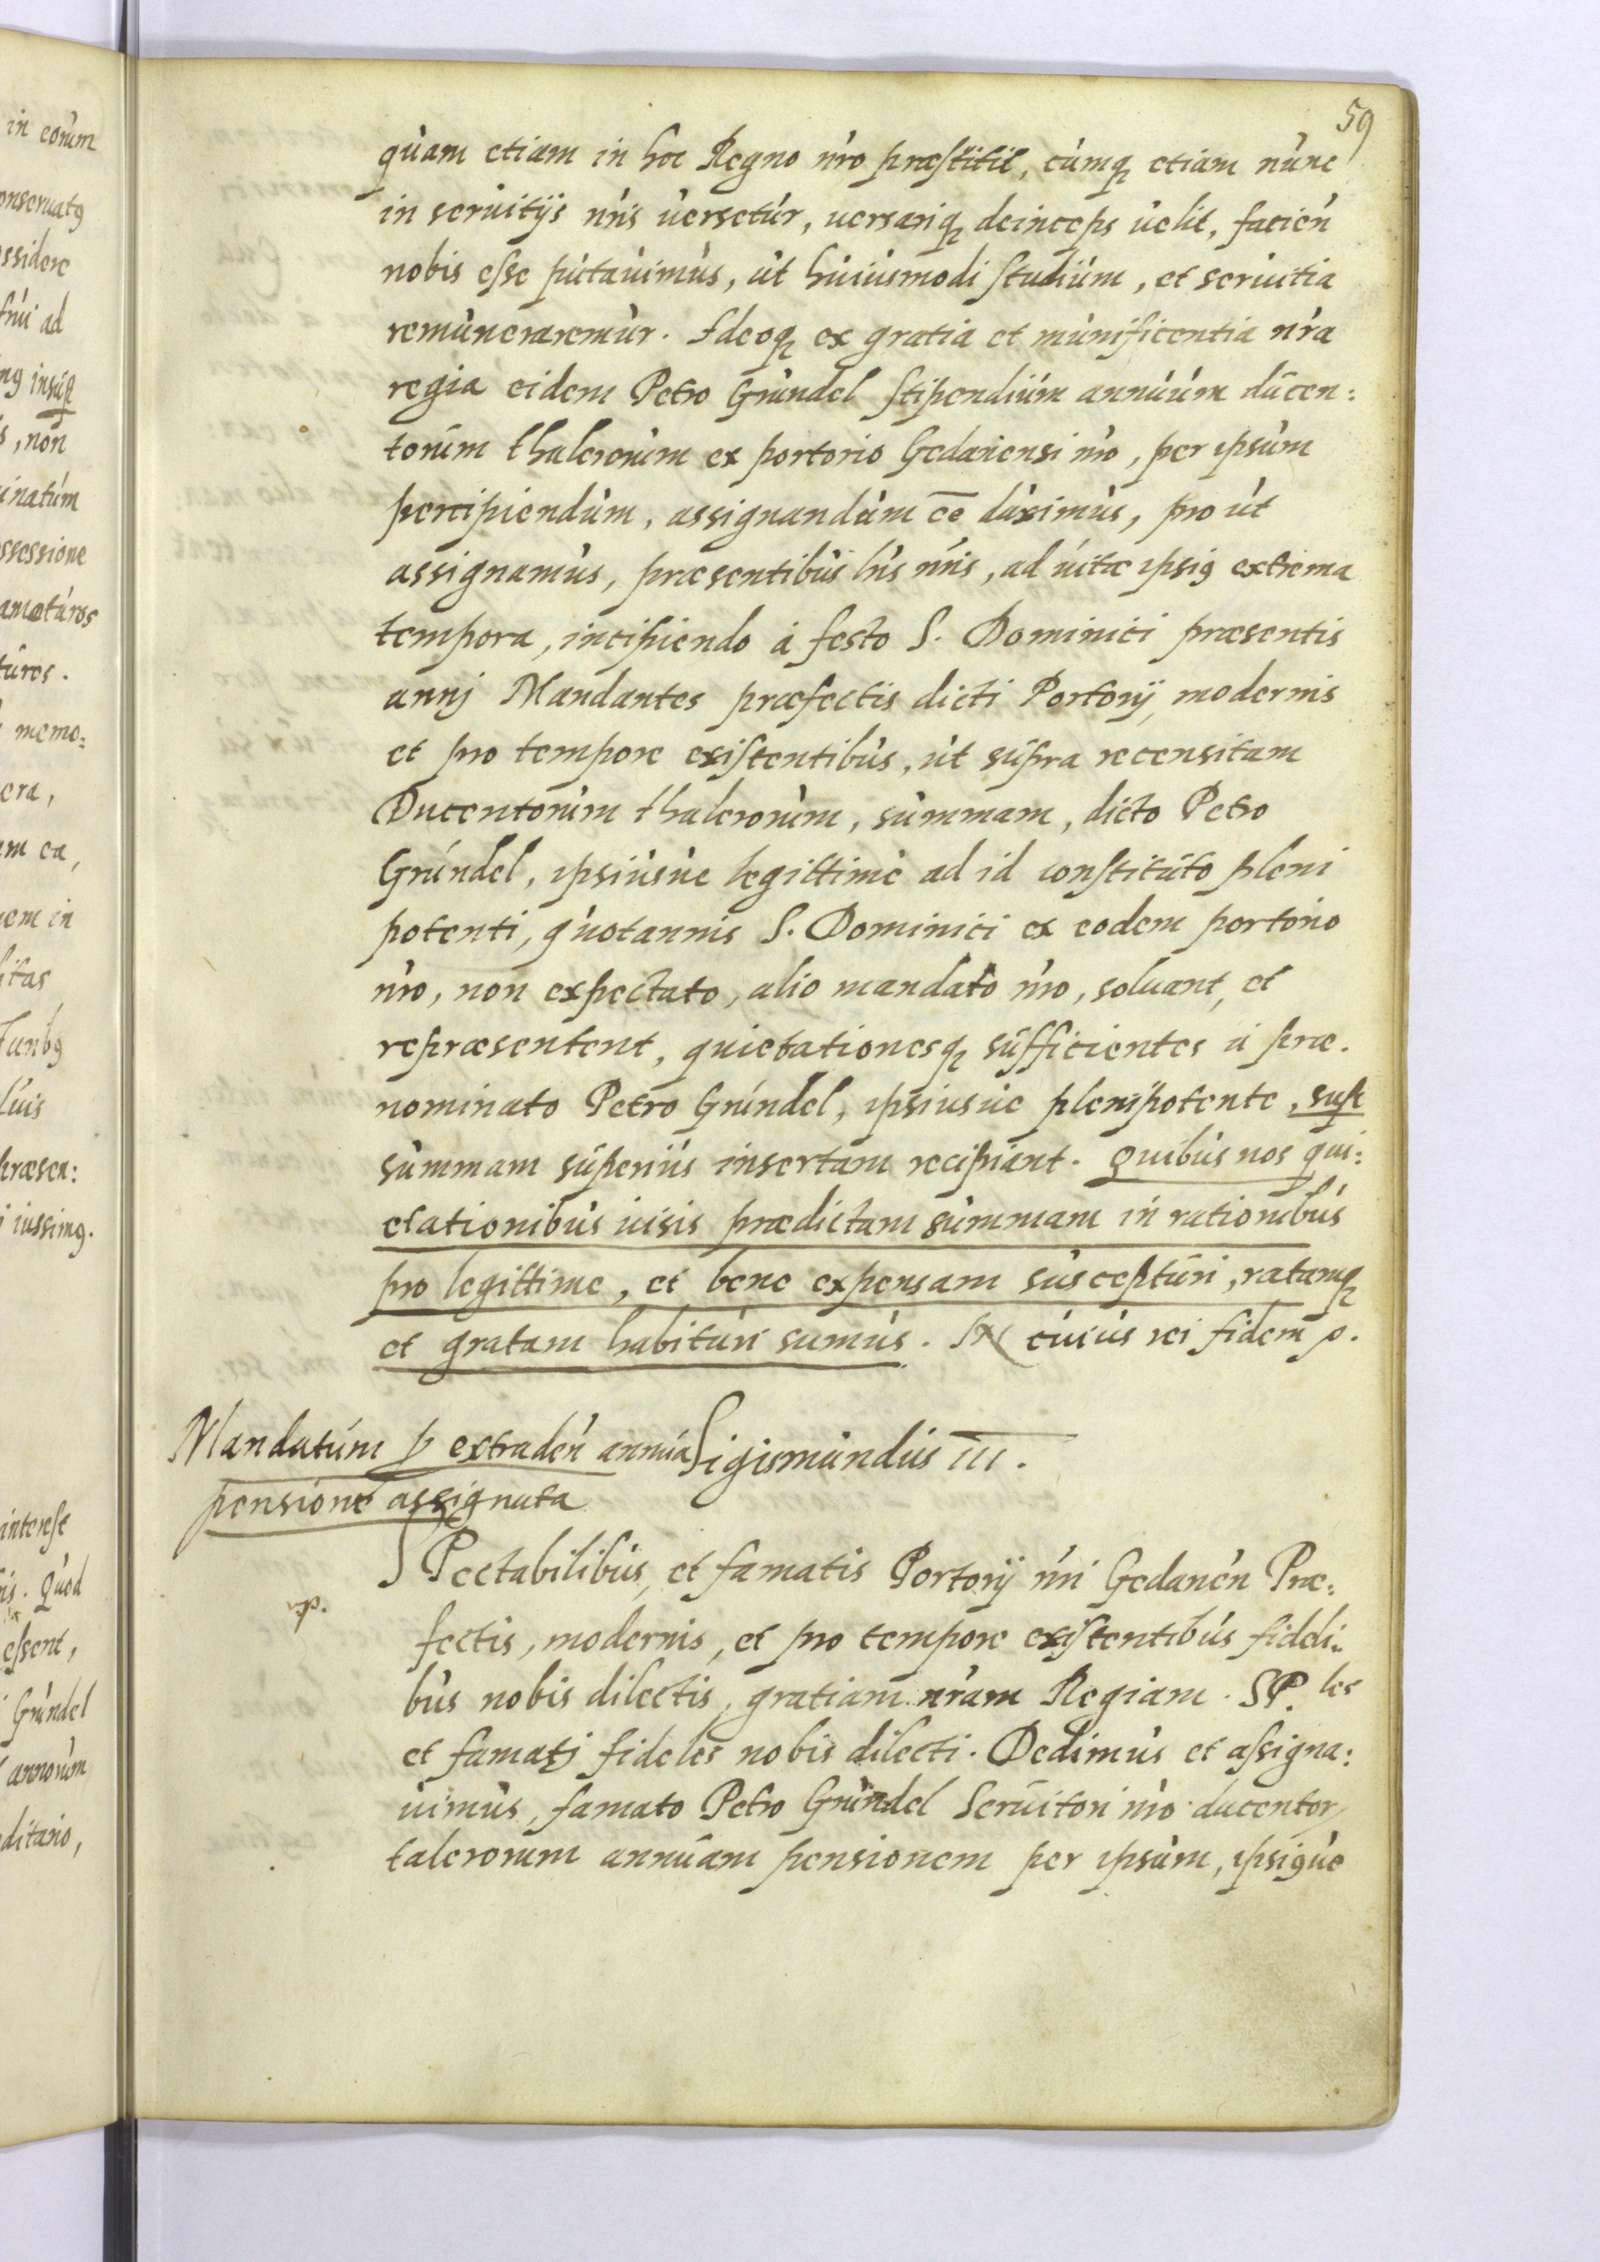 59
quam etiam in hoc Regno nro præstitit, cumq etiam nunc
in seruitijs nris uersetur, uersariq deinceps uelit, facien
nobis esse putauimus, ut huiusmodi studium, et seruitia
remuneraremur. Ideoq ex gratia et munificentia nra
regia eidem Petro Grundel stipendium annuum ducen:
torum thalerorum ex portorio Gedanensi nro, per ipsum
percipiendum, assignandum ee duximus, pro ut
assignamus, præsentibus lris nris, ad uitæ ipsig extrema
tempora, incipiendo à festo S. Dominici præsentis
annj Mandantes præfectis dicti Portorij modernis
et pro tempore existentibus, ut supra recensitam
Ducentorum thalerorum, summam, dicto Petro
Grundel, ipsiusue legittime ad id constituto pleni
potenti, quotannis S. Dominici ex eodem portorio
nro, non expectato, alio mandato nro, soluant, et
repræsentent, quietationesq sufficientes à præ.
nominato Petro Grundel, ipsiusue plenipotente, sup
summam superius insertam recipiant. Quibus nos qui:
etationibus uisis prædictam summam in rationibus
pro legittime, et bene expensam suscepturi, ratamq
et gratam habituri sumus. IN cuius rei fidem p.
Mandatum p extraden annua
pensione assignata
Sigismundus III.
SPectabilibus, et famatis Portorij nri Gedanen Præ:
fectis, modernis, et pro tempore existentibus fideli:
bus nobis dilectis, gratiam nram Regiam. SP.les
et famatj fideles nobis dilecti. Dedimus et assigna:
uimus, famato Petro Grundel Seruitori nro ducentor
talerorum annuam pensionem per ipsum, ipsigue
in eorum
onseruatg
ssidere
frui ad
, non
inatum
ssessione
turos.
memo:
era,
m ea,
em in
itas
præsen:
iussimg.
interesse
is. Quod
essent,
Grundel
annorum
ditario,